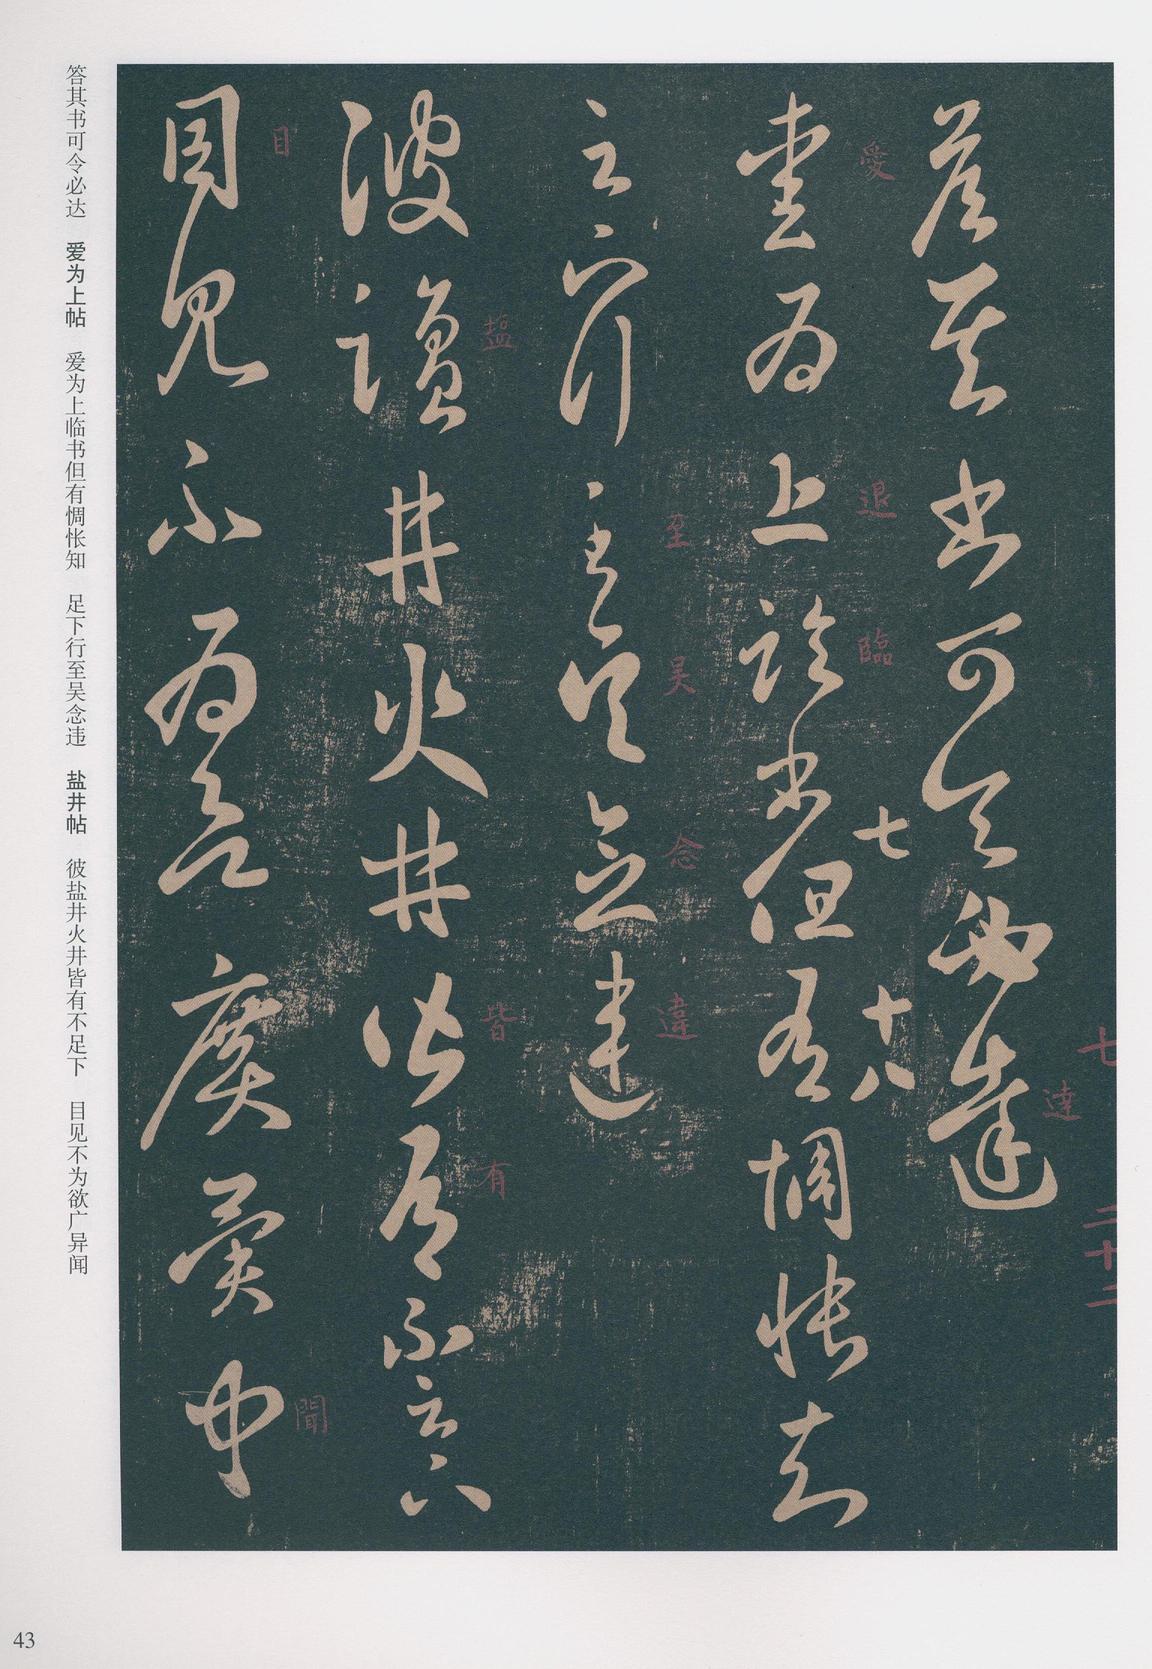 答其書可令必達
愛為上臨書但有惆悵知
七
十八
足下行至吴念違
彼鹽井火井皆有不足下
目見不為欲廣異聞
愛
退
臨
達
七
二十二
至
吴
念
違
盐
皆
有
目
聞
答其书可令必达 爱为上帖 爱为上临书但有惆怅知 足下行至吴念违 盐井帖 彼盐井火井皆有不足下 目见不为欲广异闻
43